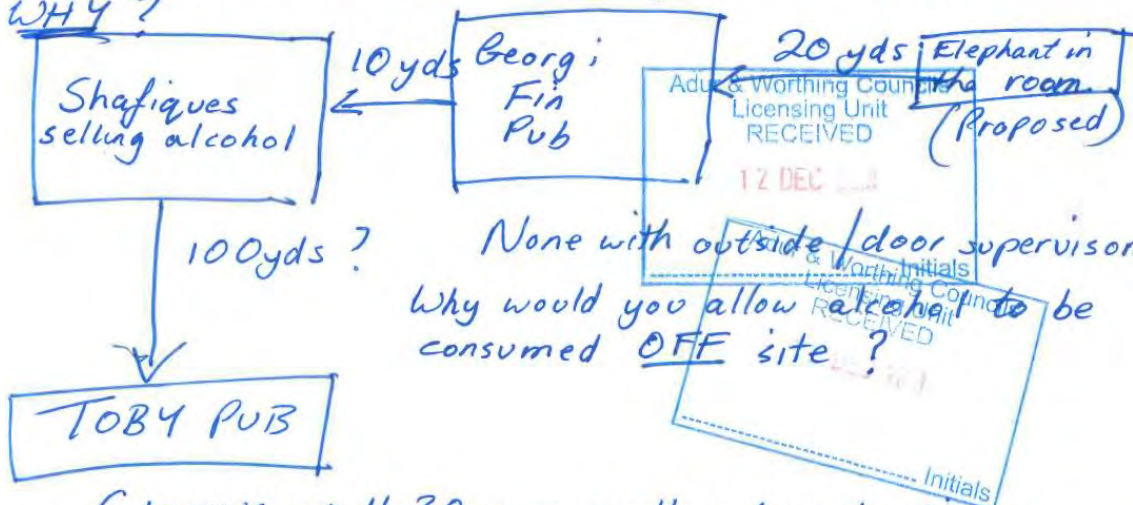 WHY?
Shafiques
selling alcohol
10 yds
Georgi
Fin
Pub
20 yds
Elephant in
the room.
(Proposed)
Adur & Worthing Councils
Licensing Unit
RECEIVED
12 DEC
Initials
100yds?
None with outside/door supervisor
Why would you allow alcohol to be
consumed OFF site?
Adur & Worthing Councils
Licensing Unit
RECEIVED
Initials
TOBY PUB